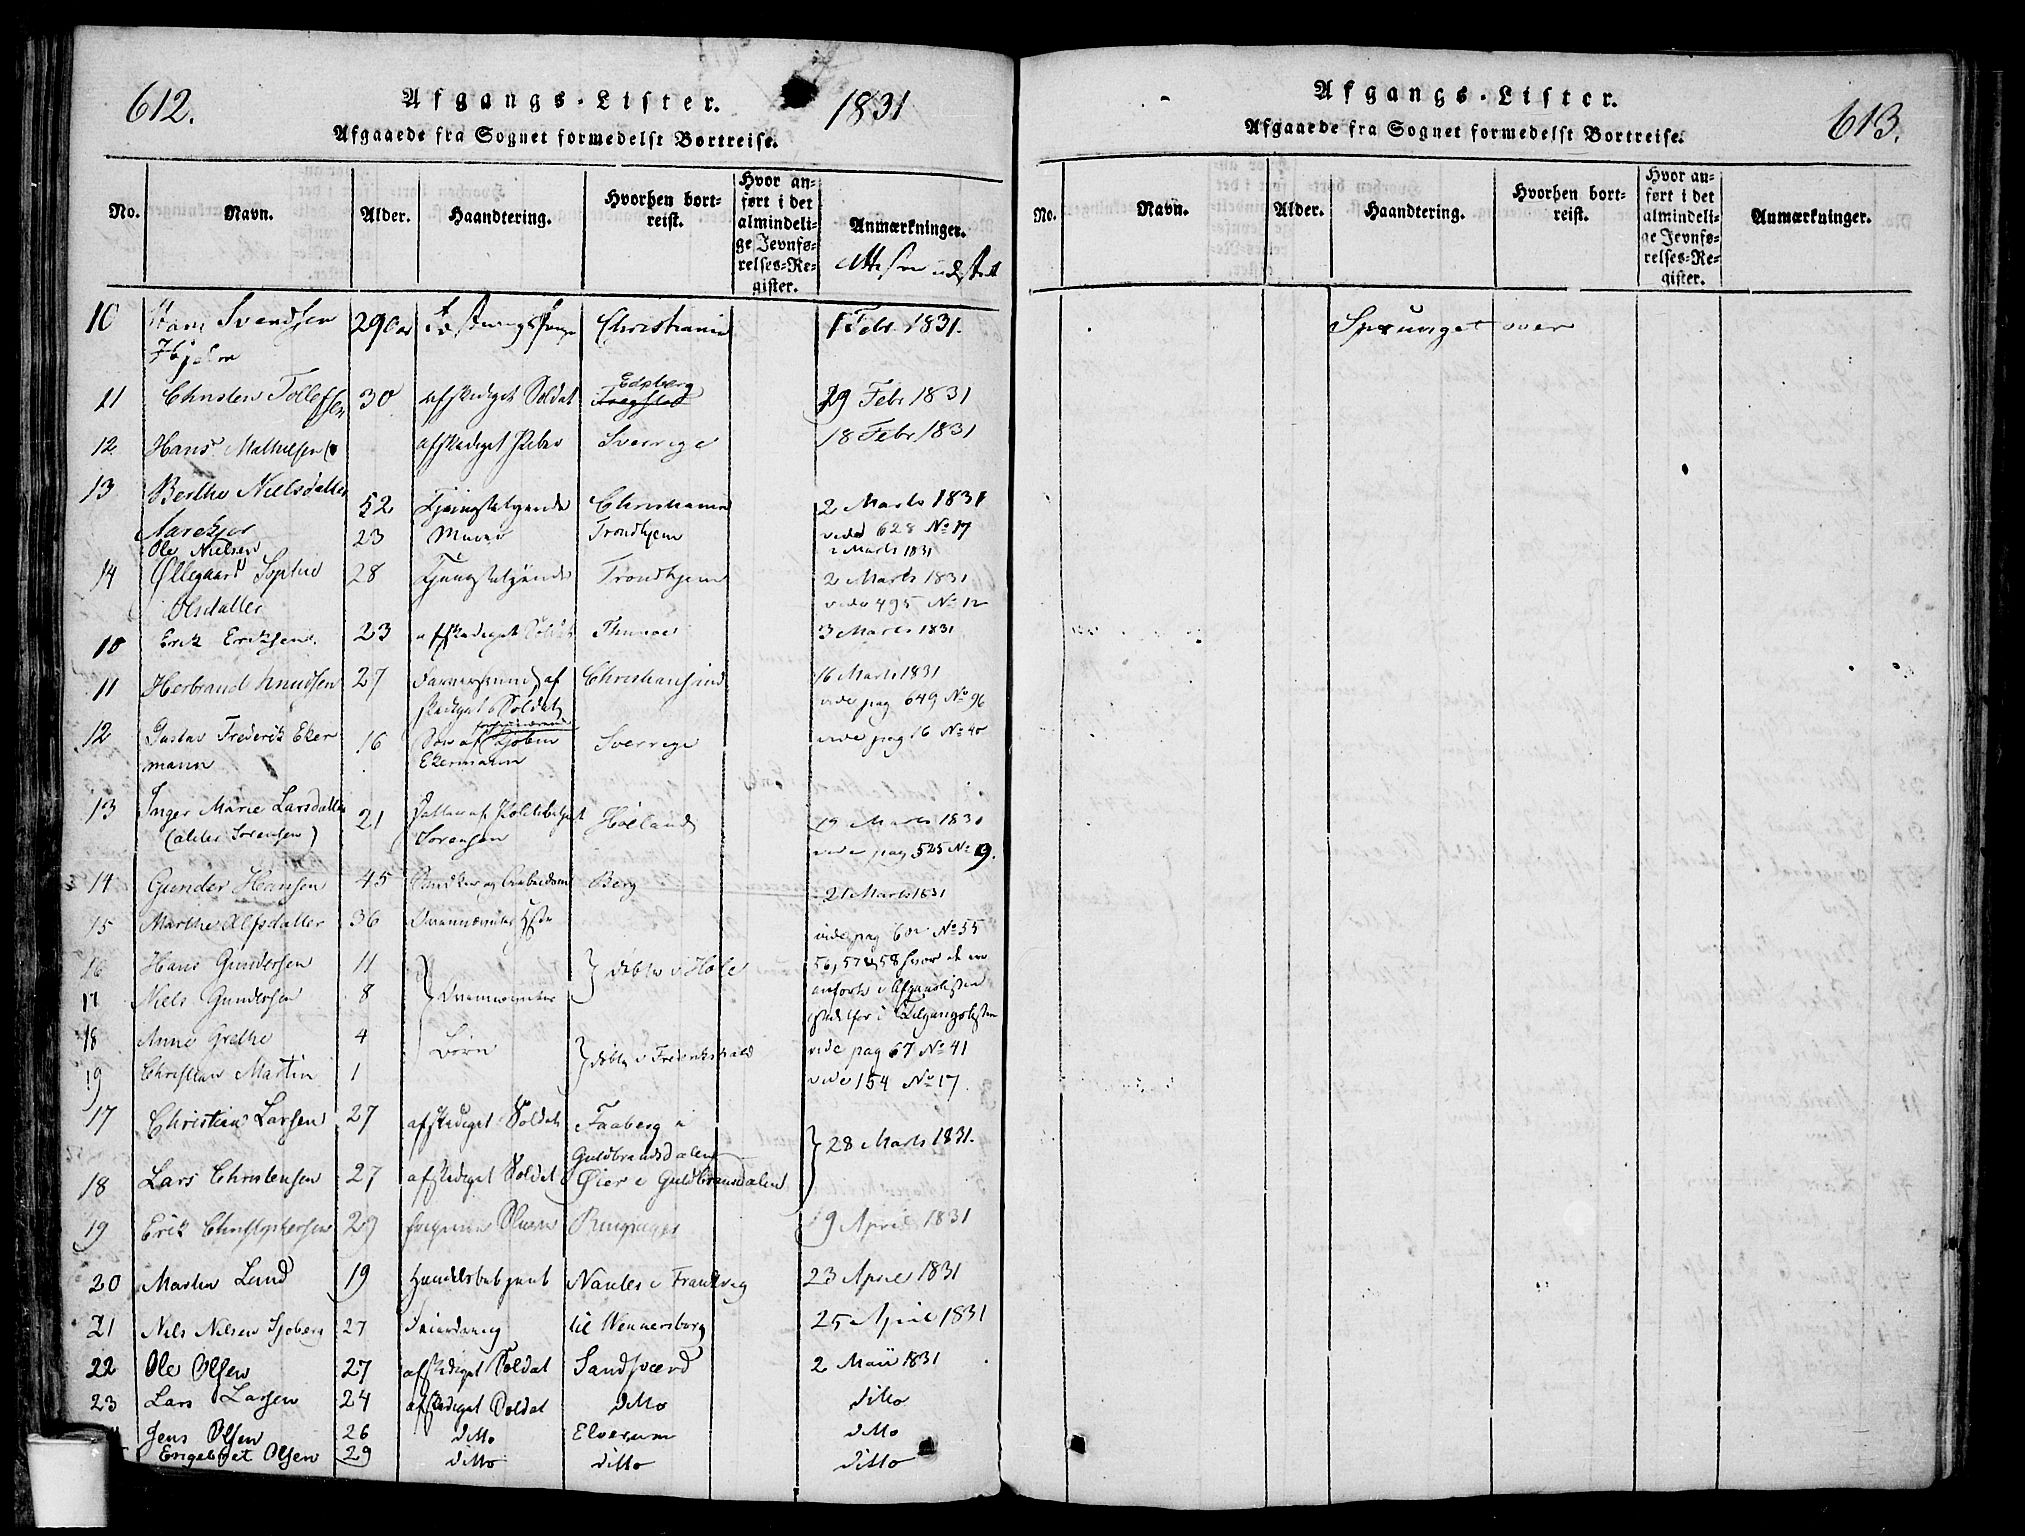 612.
Afgangs-Lister.
1831
Afgaaede fra Sognet formedelst Bortreise.
No. Navn. Alder. Haandtering. Hvorhen bortreist. Hvor anført i det almindelige Jevnførelses-Register. Anmærkninger.
10 Hans Svendsen 29 Christiania 1 Febr 1831.
11 Christen Tollefsen 30 afskediget Soldat Edsberg 29 Febr 1831
12 Hans afskediget Sverrige 18 Febr 1831
13 Berthe Nielsdatter 52 Christiania 2 Marts 1831
23 Trondhjem vide 628 No 17
Ole Nielsen 2 Marts 1831
14 Øllegaard Sophie 28 Trondhjem 2 Marts 1831
Olsdatter vide 495 No 12
10 Erik Eriksen 23 afskediget Soldat 3 Marts 1831
11 Herbrand Knudsen 27 af Christiansand 16 Marts 1831
skediget Soldat vide pag 649 No 96
12 Gustav Frederik Eker 16 Søn af Sverrige vide pag 16 No 40
mann Ekermann
13 Inger Marie Larsdatter 21 Høland 19 Marts 1831
(alias Sørensen) Sørensen vide pag 525 No 9.
14 Gunder Hansen 45 Berg 21 Marts 1831
15 Marthe Alfsdatter 36 vide pag No 55
16 Hans Gundersen 11 døbte i 56, 57 58 hvor de ere
17 Niels Gundersen 8 anførte i Afgangslisten
18 Anne Grethe 4 Børn istedetfor i Tilgangslisten
døbte i Frederikshald vide pag 67 No 41
19 Christian Martin 1 vide 154 No 17.
17 Christian Larsen 27 afskediget Soldat Faaberg i
Guldbrandsdalen 28 Marts 1831.
18 Lars Christensen 27 afskediget Soldat Øier i Guldbransdalen
19 Erik Christophersen 29 Ringsager 19 April 1831
20 Lund 19 Handelsbetjent Nantes i Frankrig 23 April 1831
21 Nils Nilsen Sjøberg 27 til Wennersborg 25 April 1831
22 Ole Olsen 27 afskediget Soldat Sandsværd 2 Maii 1831
23 Lars Larsen 24 afskediget Soldat ditto ditto
Jens Olsen 26 ditto Elverum ditto
Engebret Olsen 29 ditto ditto ditto
Afgangs-Lister.
613.
Afgaaede fra Sognet formedelst Bortreise.
No. Navn. Alder. Haandtering. Hvorhen bortreist. Hvor anført i det almindelige Jevnførelses-Register. Anmærkninger.
Sprunget over